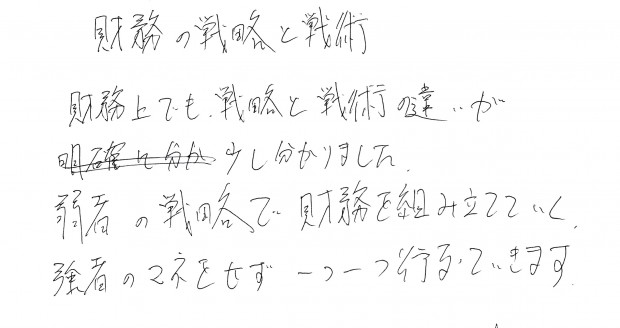 財務の戦略と戦術
財務上でも、戦略と戦術の違いが
明確に分か 少し分かりました。
弱者の戦略で財務を組み立てていく。
強者のマネをせず一つ一つ行っていきます。